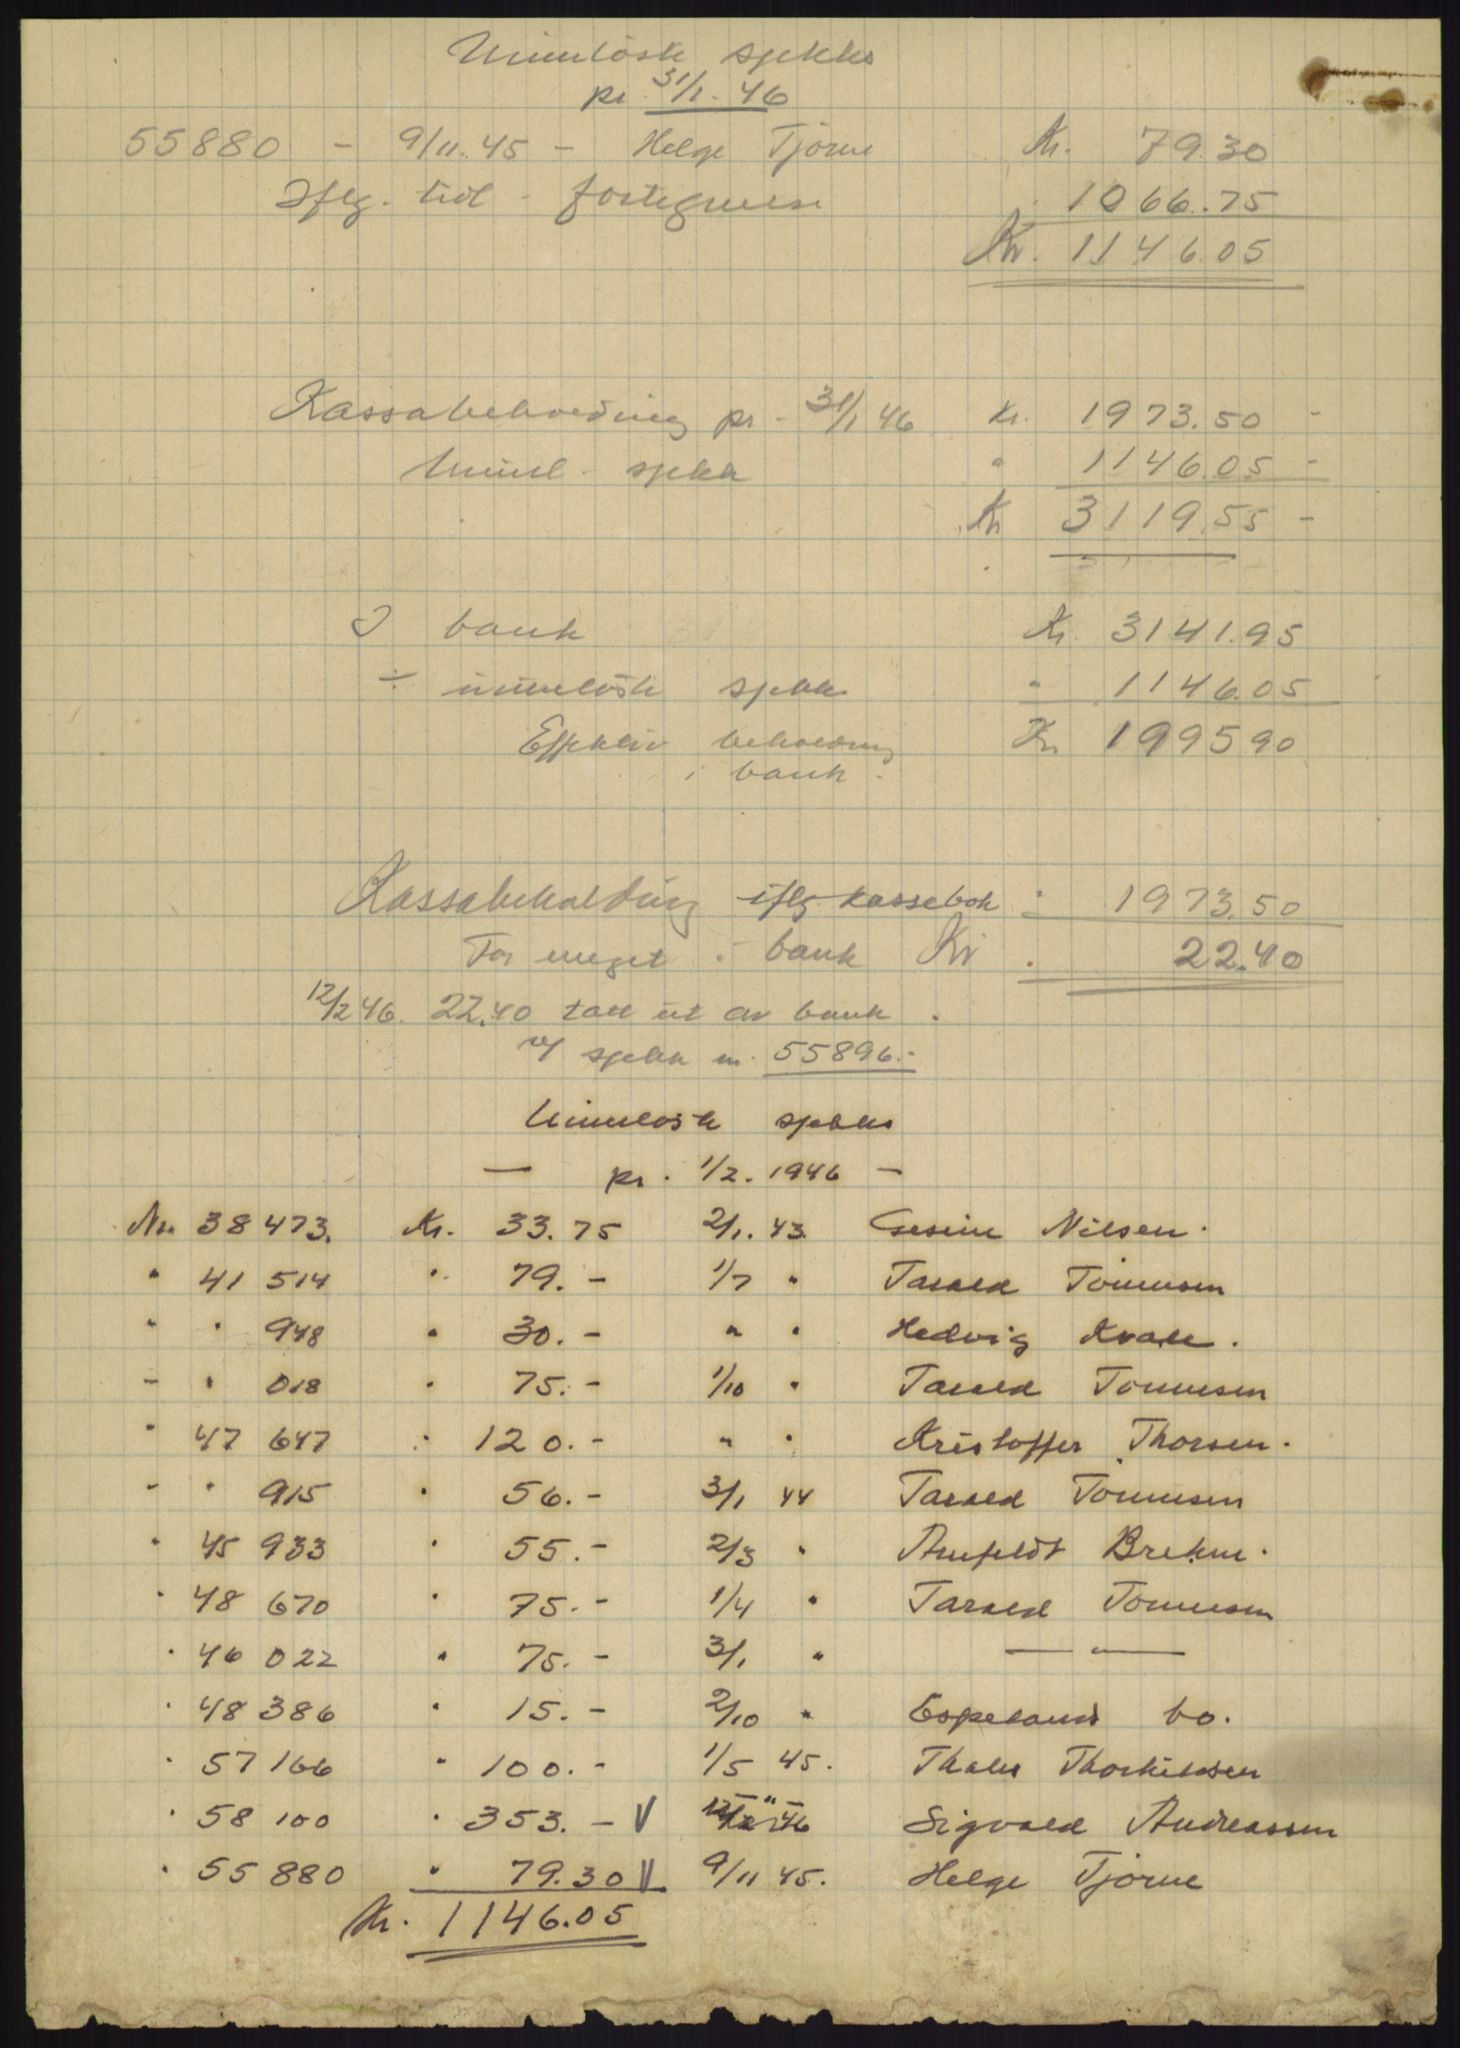 Uinnløste sjekks
pr. 31/1. 46
55880 - 9/11.45 - Helge Tjörne Kr. 79.30
Iflg. tidl. fortegnelse 1066.75
Kr. 1146.05
Kassabeholdning pr. 31/1 46 Kr. 1973.50 -
Uinnl. sjekk " 1146.05 -
Kr 3119.55 -
I bank Kr. 3141.95
÷ uinnløste sjekk " 1146.05
Effektiv beholdning Kr 1995.90
i bank.
Kassabeholdning iflg kassebok : 1973.50
For meget i bank Kr . 22.40
12/2 46. 22.40 tatt ut av bank.
v/ sjekk nr. 55896.-
Uinnløste sjekks
— pr. 1/2. 1946 —
Nr. 38 473. Kr. 33.75 2/1. 43. Gesine Nilsen.
" 41 514 " 79.- 1/7 " Tarald Tönnesen
" " 948 " 30.- " " Hedvig Kvale.
" " 018 " 75.- 1/10 " Tarald Tönnesen
" 47 647 " 120.- " " Kristoffer Thorsen.
" " 915 " 56.- 3/1 44 Tarald Tönnesen
" 45 933 " 55.- 2/3 " Arnfeldt Brekne.
" 48 670 " 75.- 1/4 " Tarald Tönnesen
" 46 022 " 75.- 3/1 " — " —
" 48 386 " 15.- 2/10 " Espelands bo.
" 57 166 " 100.- 1/5 45. Thales Thorkildsen
" 58 100 " 353.- V 46 Sigvald Andreassen
" 55 880 " 79.30 V 9/11 45. Helge Tjörne
Kr. 1146.05